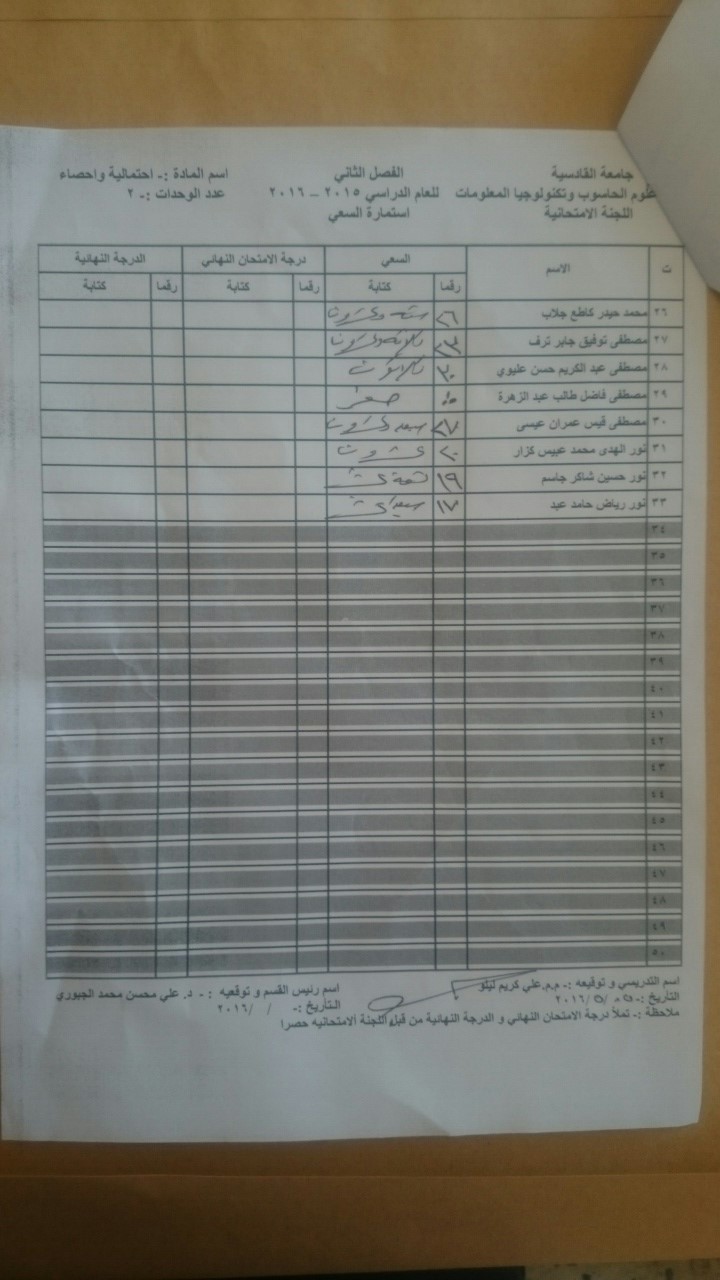 جامعة القادسية
علوم الحاسوب وتكنولوجيا المعلومات
اللجنة الامتحانية
الفصل الثاني
للعام الدراسي ٢٠١٥ – ٢٠١٦
استمارة السعي
اسم المادة :- احتمالية واحصاء
عدد الوحدات :- ٢
ت الاسم السعي درجة الامتحان النهائي الدرجة النهائية
رقما كتابة رقما كتابة رقما كتابة
٢٦ محمد حيدر كاطع جلاب ٢٦ ستة وعشرون
٢٧ مصطفى توفيق جابر ترف ٢٣ ثلاثة وعشرون
٢٨ مصطفى عبد الكريم حسن عليوي ٣٠ ثلاثون
٢٩ مصطفى فاضل طالب عبد الزهرة صفر
٣٠ مصطفى قيس عمران عيسى ٢٧ سبعة وعشرون
٣١ نور الهدى محمد عبيس كزار ٢٠ عشرون
٣٢ نور حسين شاكر جاسم ١٩ تسعة عشر
٣٣ نور رياض حامد عبد ١٧ سبعة عشر
٣٤
٣٥
٣٦
٣٧
٣٨
٣٩
٤٠
٤١
٤٢
٤٣
٤٤
٤٥
٤٦
٤٧
٤٨
٤٩
٥٠
اسم التدريسي و توقيعه :- م.م.علي كريم ليلو
التاريخ :- /٥ /٢٠١٦
اسم رئيس القسم و توقعيه :- د. علي محسن محمد الجبوري
التاريخ :- / /٢٠١٦
ملاحظة :- تملأ درجة الامتحان النهائي و الدرجة النهائية من قبل اللجنة الامتحانيه حصرا